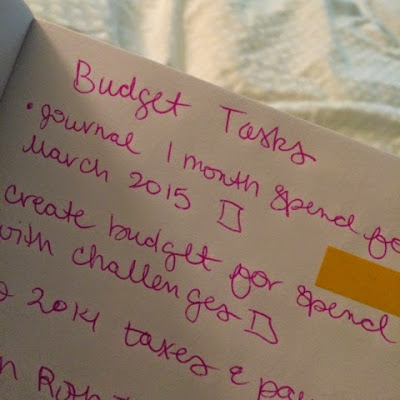 Budget Tasks
• journal 1 month spend fo
March 2015
create budget for spend
with challenges
2014 taxes &